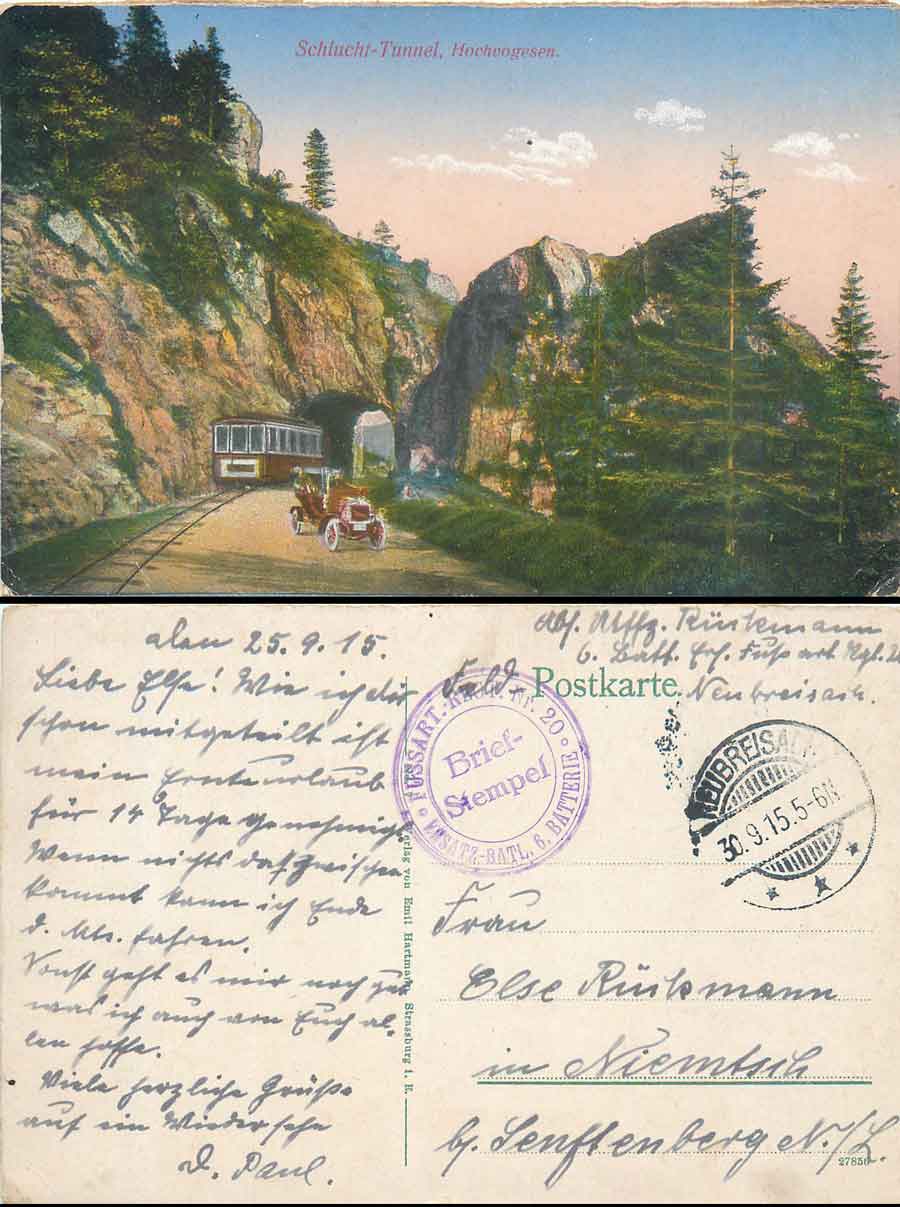 Schlucht-Tunnel, Hochvogesen.
den 25.9.15.
Liebe Else! Wie ich dir
schon mitgeteilt ist
mein Ernteurlaub
für 14 Tage genehmigt.
Wenn nichts dazwischen
kommt kann ich Ende
d. Mts. fahren.
Sonst geht es mir noch gut
was ich auch von Euch al-
len hoffe.
Viele herzliche Grüße
auf ein Wiedersehn
D. Paul.
Abs. Uffz. Rückmann
6. Batt. Ers. Fußart. Rgt. 20
Neubreisach.
Feld- Postkarte
FUSSART.-REGT. Nr. 20
Brief-
Stempel
ERSATZ-BATL. 6. BATTERIE
NEUBREISACH
30.9.15.5-6N
Verlag von Emil Hartmann, Strassburg i. E.
Frau
Else Rückmann
in Niemtsch
b/. Senftenberg N./L.
27856